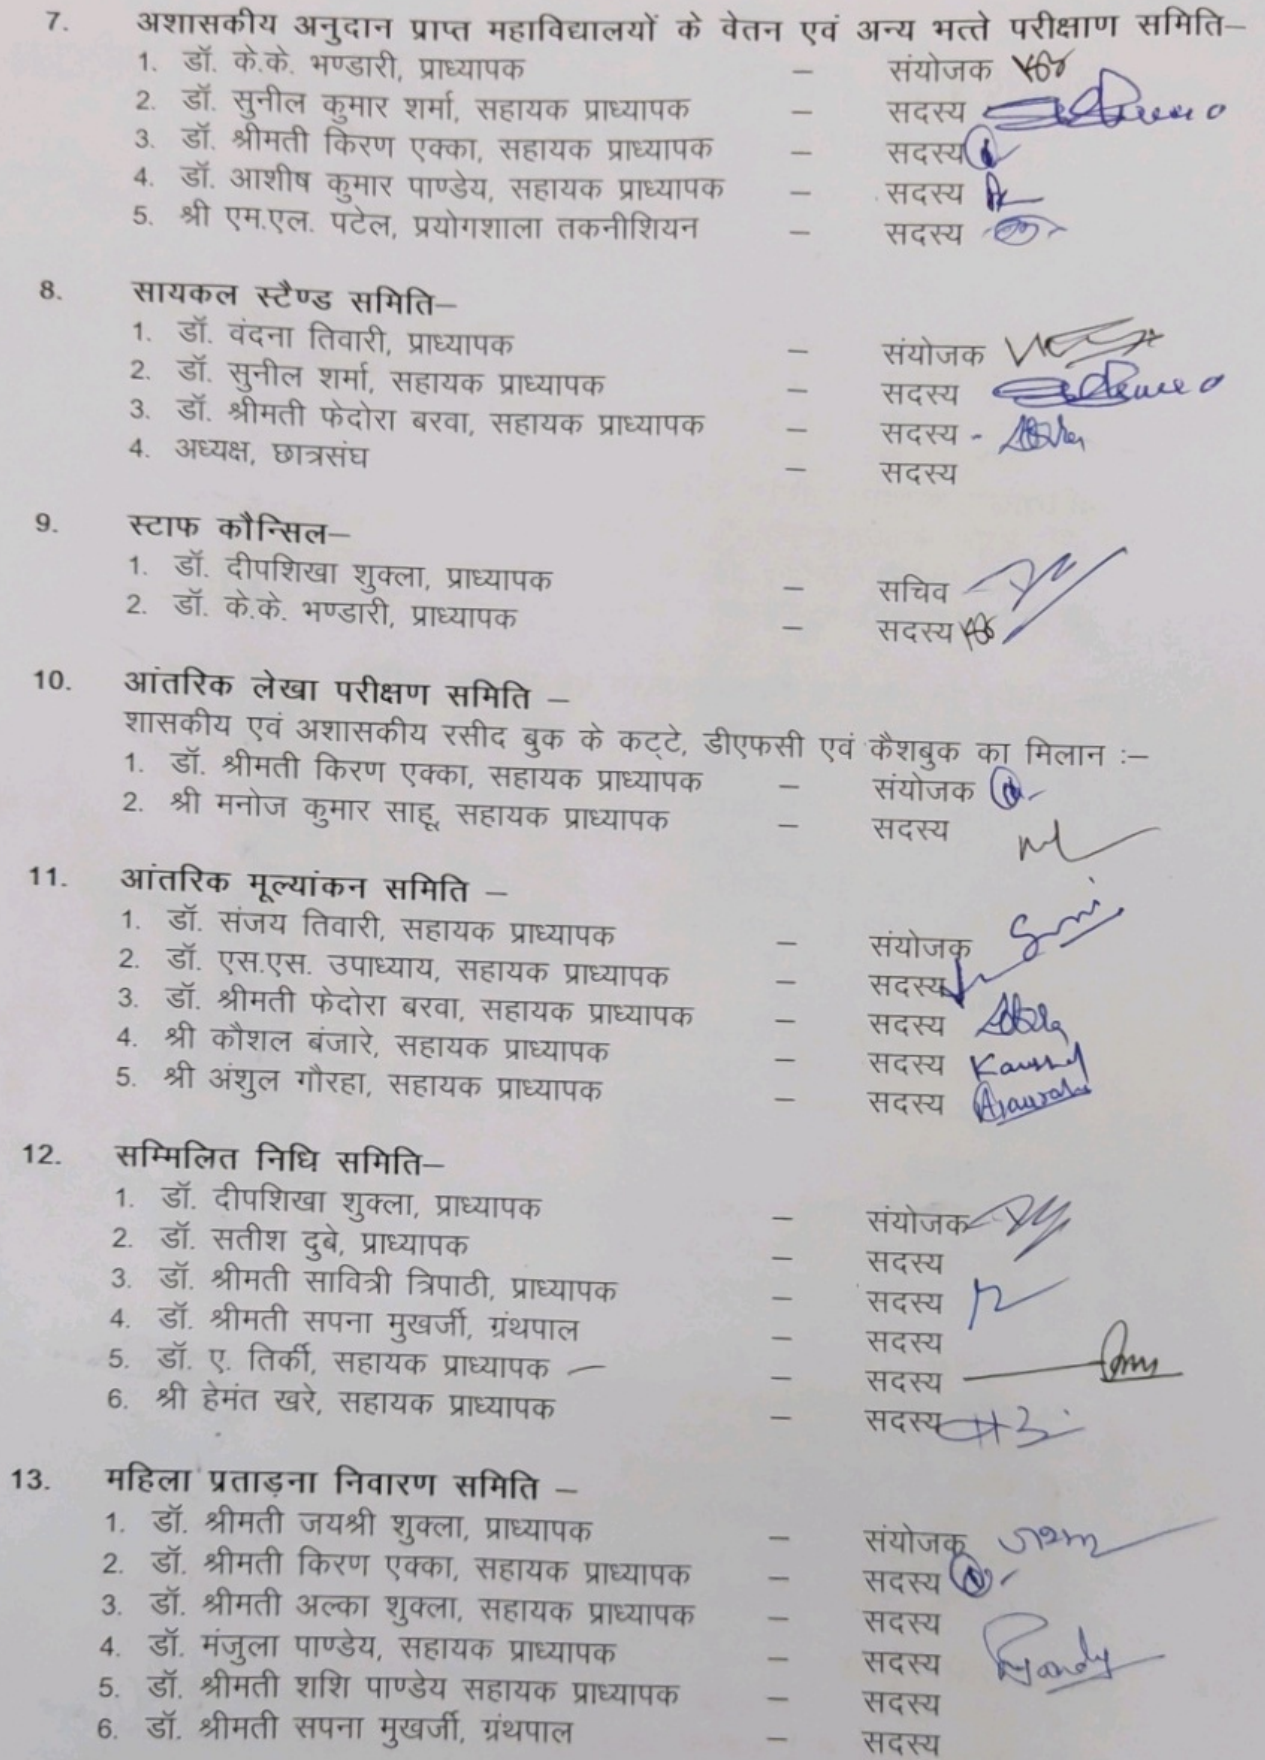 7. अशासकीय अनुदान प्राप्त महाविद्यालयों के वेतन एवं अन्य भत्ते परीक्षाण समिति–
1. डॉ. के.के. भण्डारी, प्राध्यापक – संयोजक
2. डॉ. सुनील कुमार शर्मा, सहायक प्राध्यापक – सदस्य
3. डॉ. श्रीमती किरण एक्का, सहायक प्राध्यापक – सदस्य
4. डॉ. आशीष कुमार पाण्डेय, सहायक प्राध्यापक – सदस्य
5. श्री एम.एल. पटेल, प्रयोगशाला तकनीशियन – सदस्य
8. सायकल स्टैण्ड समिति–
1. डॉ. वंदना तिवारी, प्राध्यापक – संयोजक
2. डॉ. सुनील शर्मा, सहायक प्राध्यापक – सदस्य
3. डॉ. श्रीमती फेदोरा बरवा, सहायक प्राध्यापक – सदस्य
4. अध्यक्ष, छात्रसंघ – सदस्य
9. स्टाफ कौन्सिल–
1. डॉ. दीपशिखा शुक्ला, प्राध्यापक – सचिव
2. डॉ. के.के. भण्डारी, प्राध्यापक – सदस्य
10. आंतरिक लेखा परीक्षण समिति –
शासकीय एवं अशासकीय रसीद बुक के कट्टे, डीएफसी एवं कैशबुक का मिलान :–
1. डॉ. श्रीमती किरण एक्का, सहायक प्राध्यापक – संयोजक
2. श्री मनोज कुमार साहू, सहायक प्राध्यापक – सदस्य
11. आंतरिक मूल्यांकन समिति –
1. डॉ. संजय तिवारी, सहायक प्राध्यापक – संयोजक
2. डॉ. एस.एस. उपाध्याय, सहायक प्राध्यापक – सदस्य
3. डॉ. श्रीमती फेदोरा बरवा, सहायक प्राध्यापक – सदस्य
4. श्री कौशल बंजारे, सहायक प्राध्यापक – सदस्य
5. श्री अंशुल गौरहा, सहायक प्राध्यापक – सदस्य
12. सम्मिलित निधि समिति–
1. डॉ. दीपशिखा शुक्ला, प्राध्यापक – संयोजक
2. डॉ. सतीश दुबे, प्राध्यापक – सदस्य
3. डॉ. श्रीमती सावित्री त्रिपाठी, प्राध्यापक – सदस्य
4. डॉ. श्रीमती सपना मुखर्जी, ग्रंथपाल – सदस्य
5. डॉ. ए. तिर्की, सहायक प्राध्यापक – सदस्य
6. श्री हेमंत खरे, सहायक प्राध्यापक – सदस्य
13. महिला प्रताड़ना निवारण समिति –
1. डॉ. श्रीमती जयश्री शुक्ला, प्राध्यापक – संयोजक
2. डॉ. श्रीमती किरण एक्का, सहायक प्राध्यापक – सदस्य
3. डॉ. श्रीमती अल्का शुक्ला, सहायक प्राध्यापक – सदस्य
4. डॉ. मंजुला पाण्डेय, सहायक प्राध्यापक – सदस्य
5. डॉ. श्रीमती शशि पाण्डेय सहायक प्राध्यापक – सदस्य
6. डॉ. श्रीमती सपना मुखर्जी, ग्रंथपाल – सदस्य